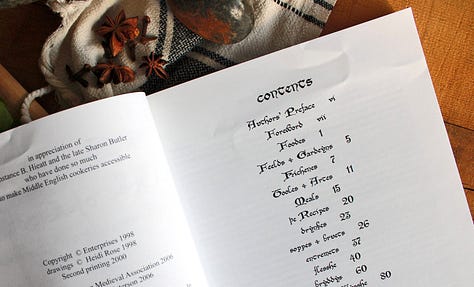 in appreciation of
stance B. Hieatt and the late Sharon Butler
who have done so much
an make Middle English cookeries accessible
Copyright © Enterprises 1998
drawings © Heidi Rose 1998
Second printing 2000
Medieval Association 2006
2006
CONTENTS
Authors' Preface vi
Foreword vii
Foodes 1
Feelds + Gardeyns 5
Kichenes 7
Tooles + Artes 11
Meals 15
þe Recipes 20
drynkes 23
soppes + frutes 26
entremets 37
flesshe 40
bryddys 60
80